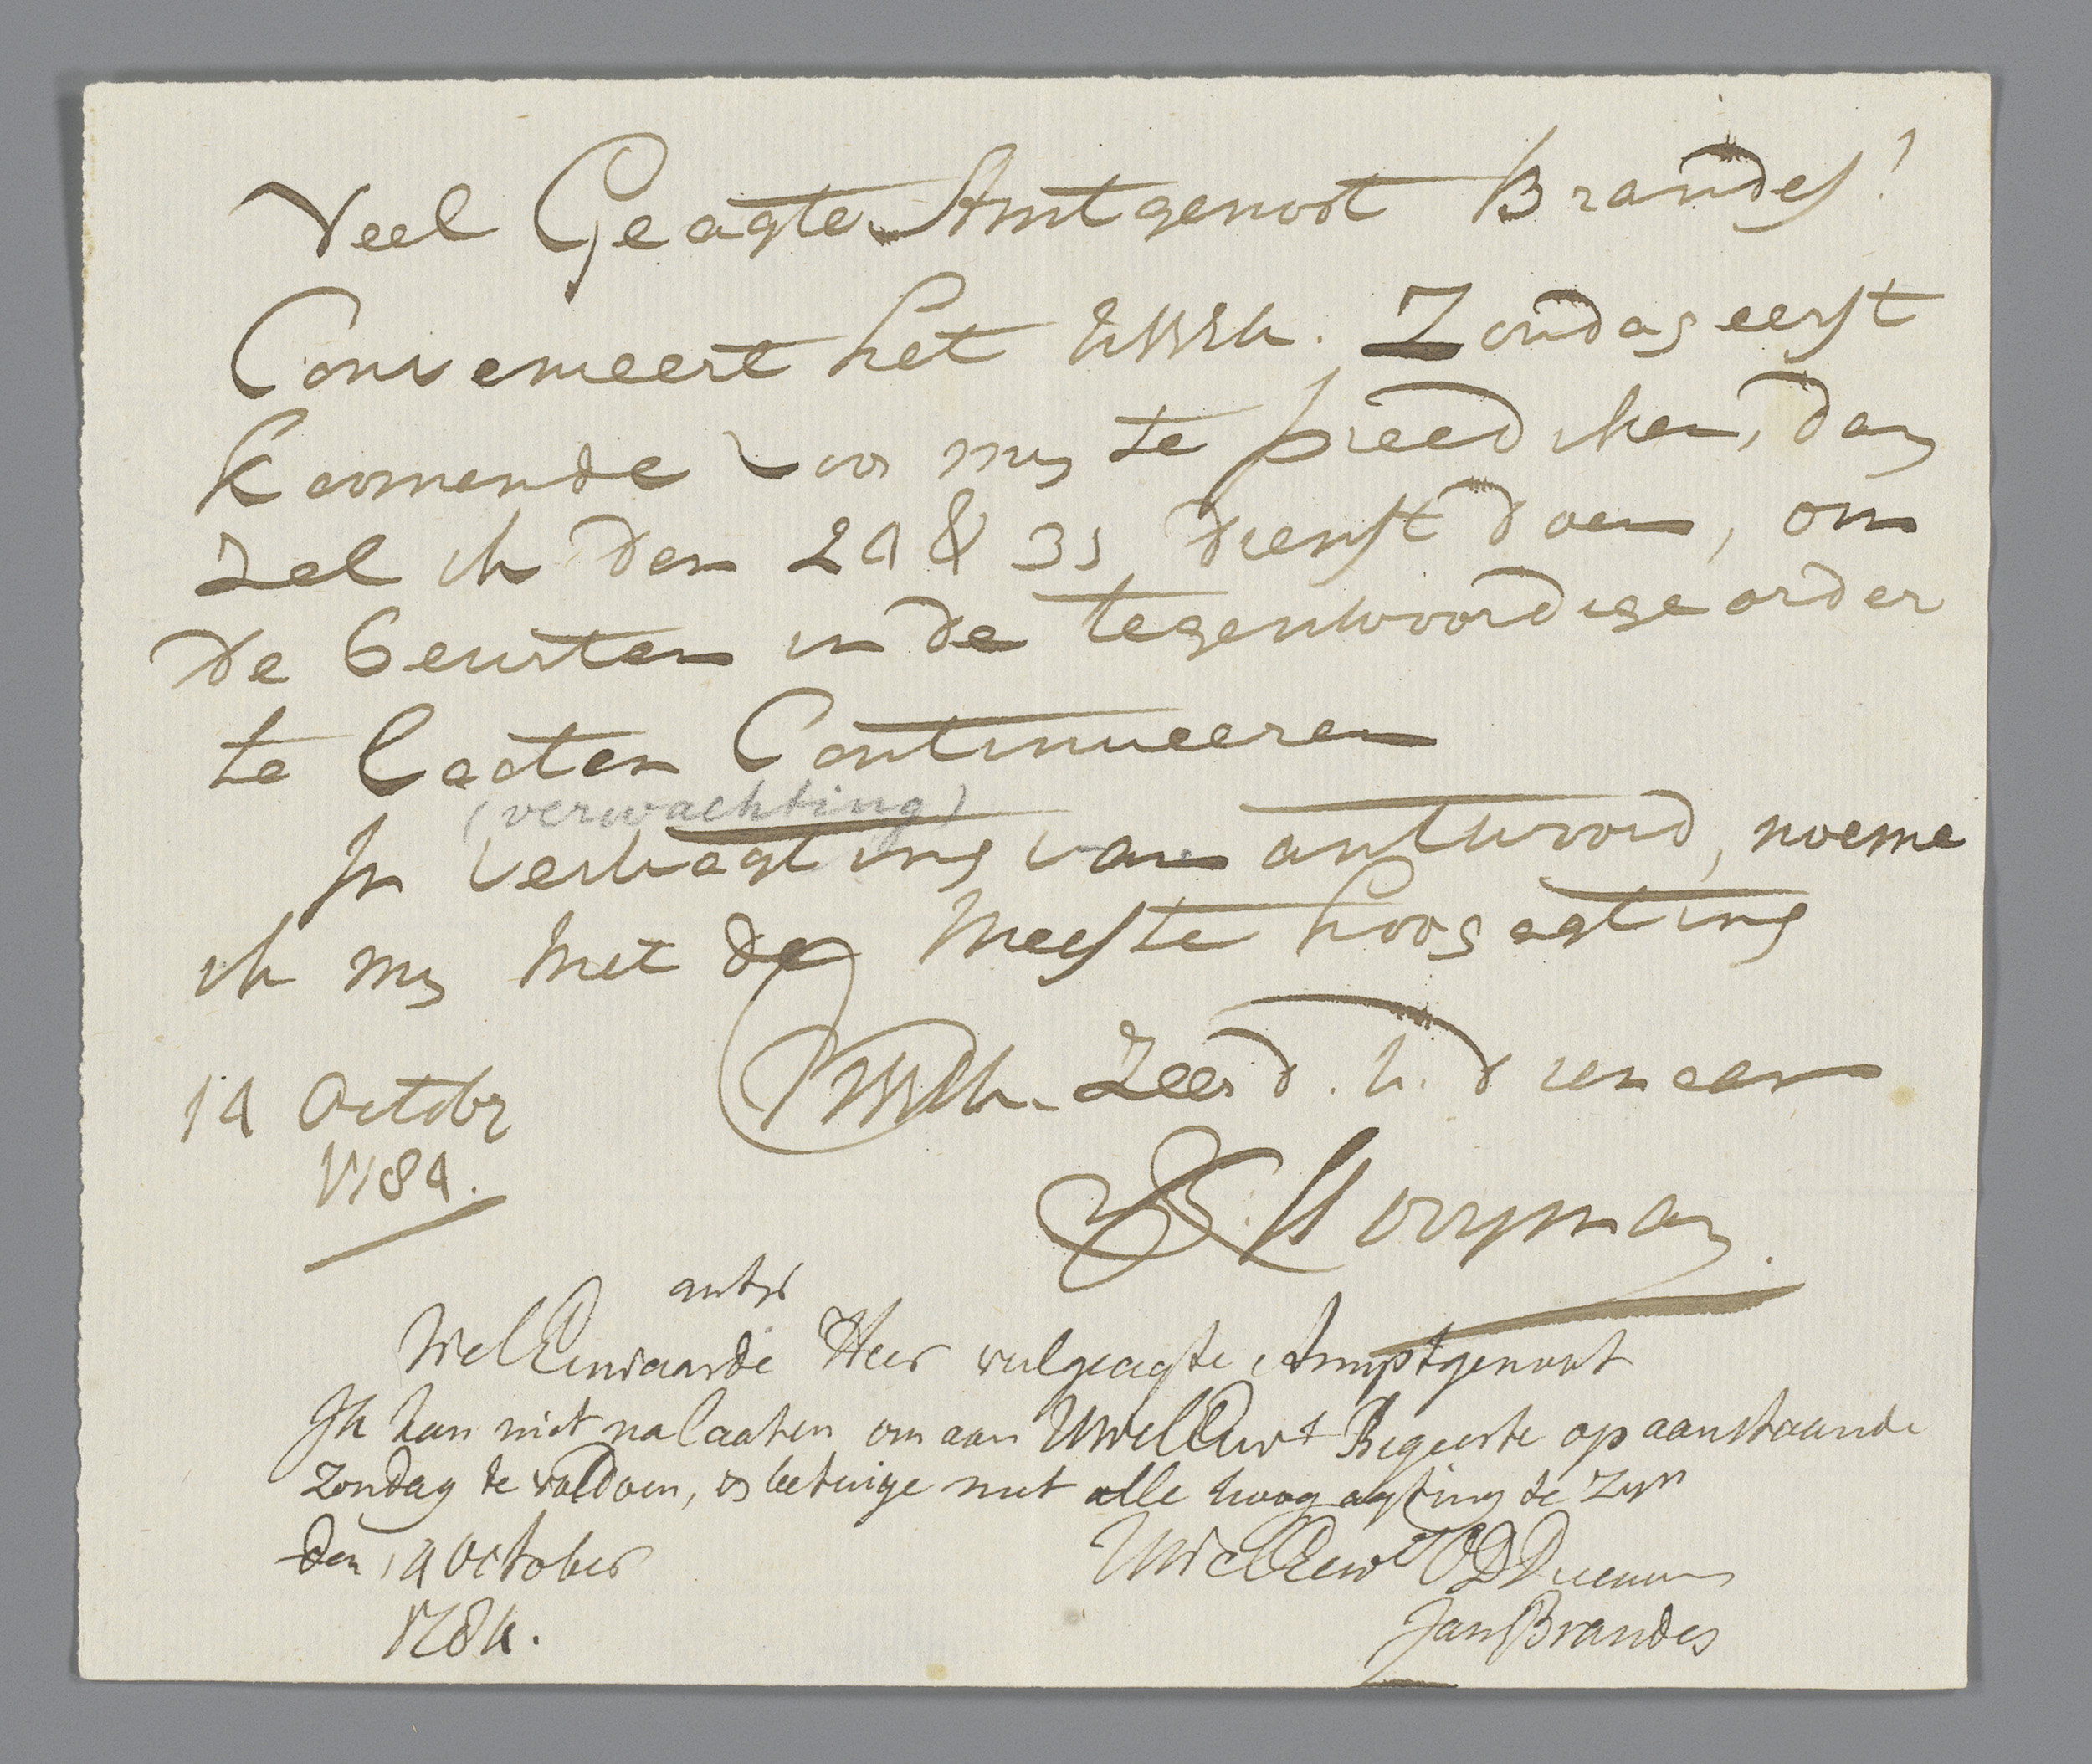 Veel Geagte Amtgenoot Brandes!
Convenieert het UWEW. Zondag eerst
koomende voor my te preediken, dan
zal ik den 24 & 31 dienst doen, om
de beurten in de tegenwoordige order
te laaten Continueeren
(verwachting)
In verwagting van antwoord, noeme
ik my met de meeste hoogagting
UWEW. Zeer d. w. dienaar
14 Octobr
1784.
Hooyman
antw
WelEerwaarde Heer veelgeagte Amptgenoot
Ik kan niet nalaaten om aan UwelEerw Begeerte op aanstaande
Zondag te voldoen, en betuige met alle hoogagting te zyn
den 14 October
1784.
UWelEerw DDienaar
Jan Brandes